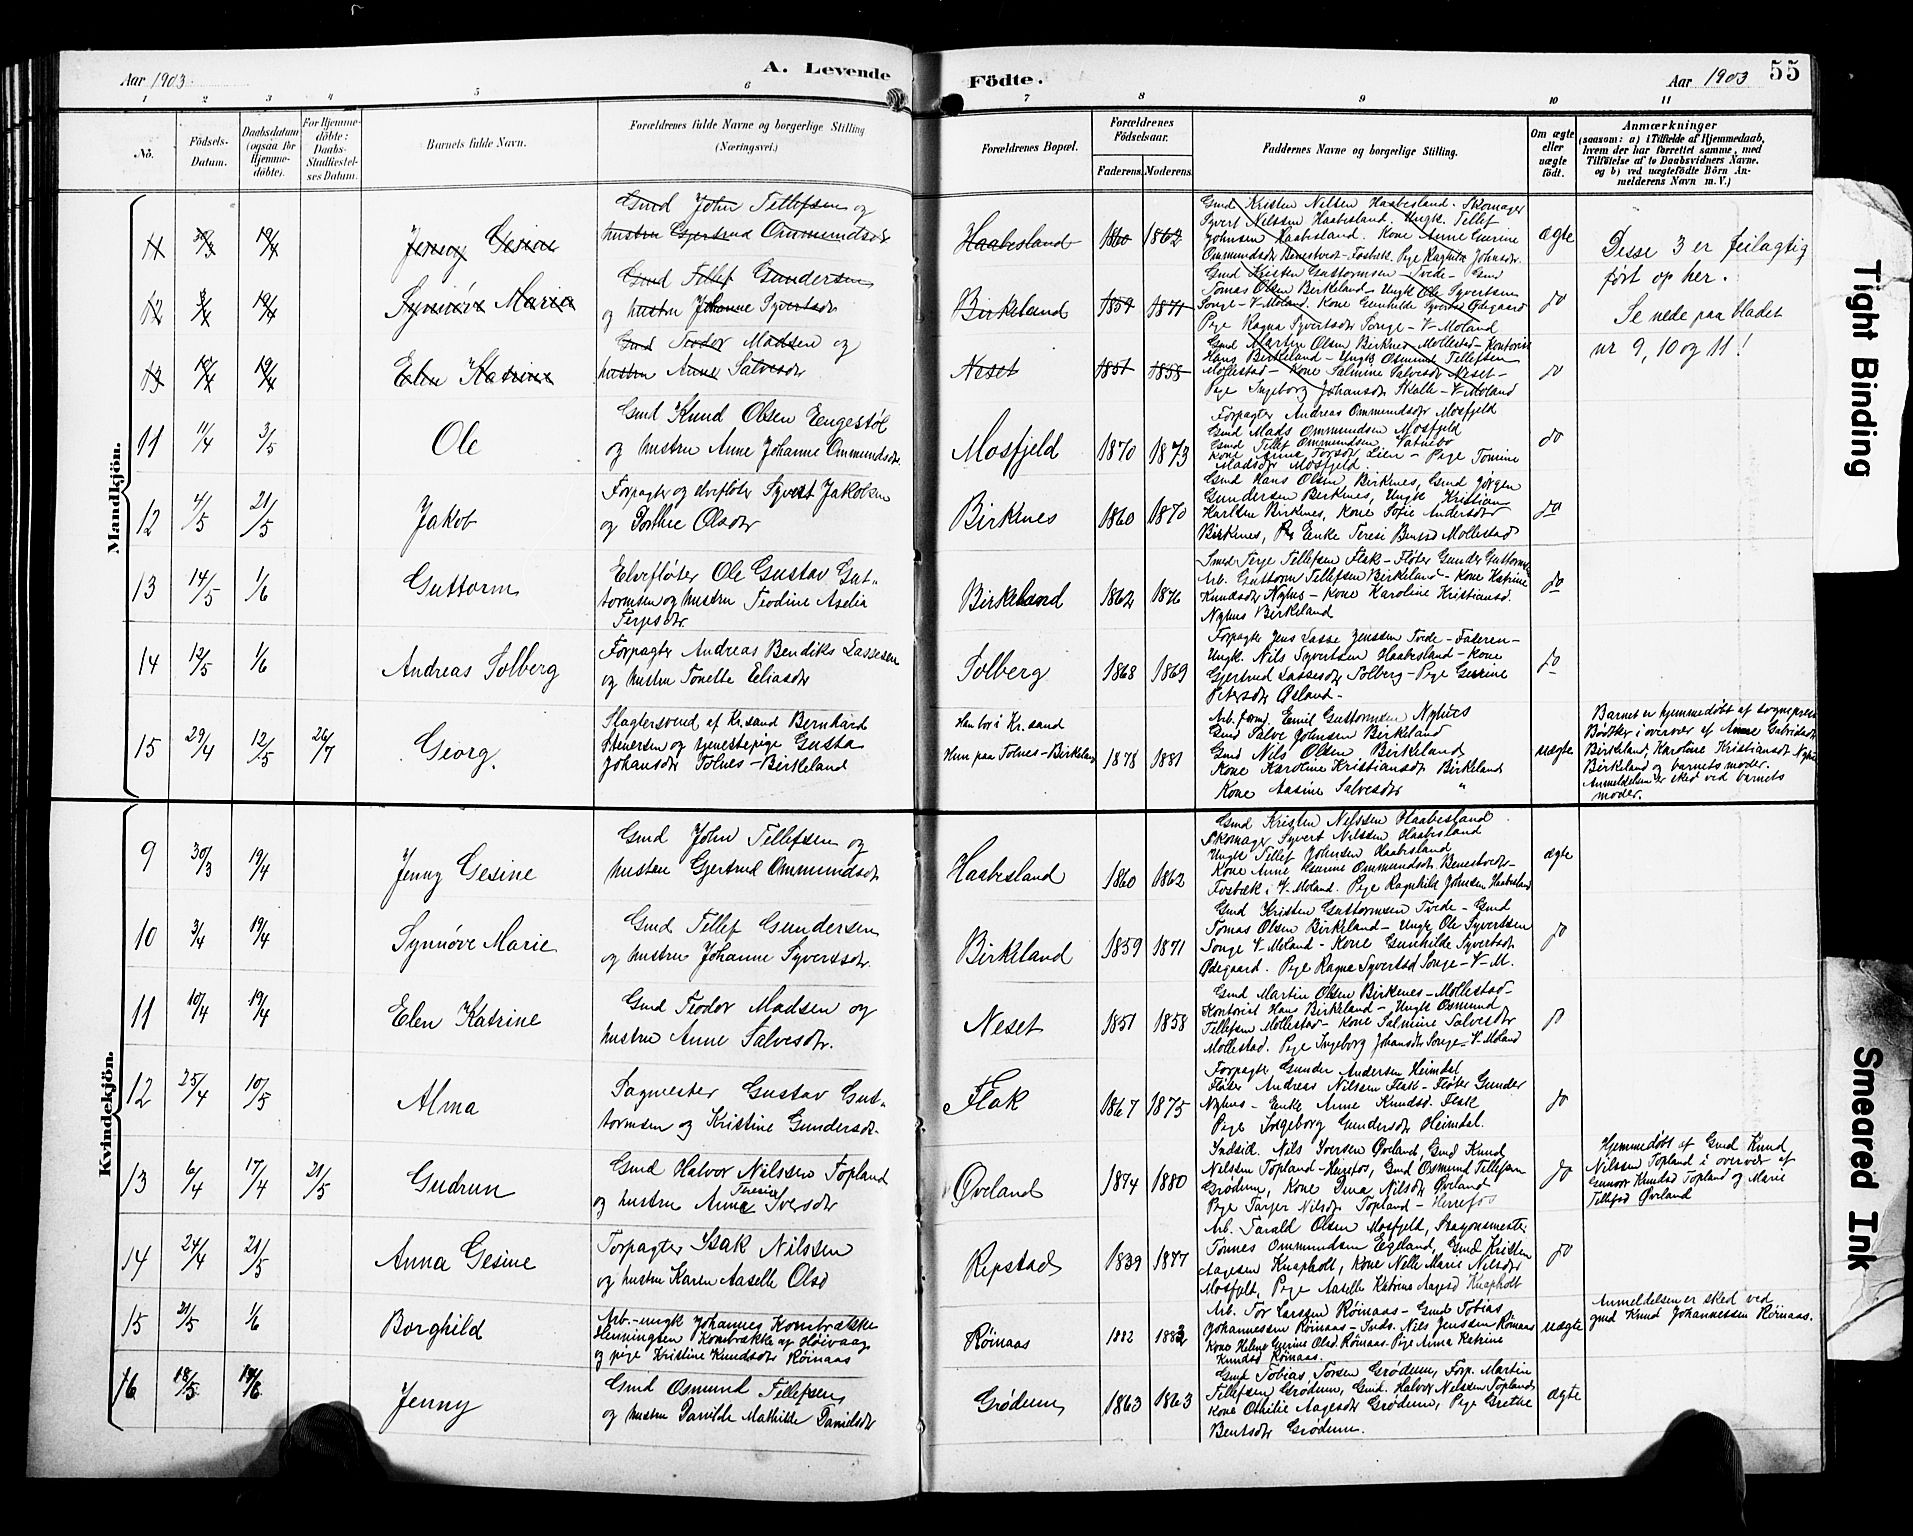 Aar 1903.
A. Levende
Födte.
Aar 1903
55
1 2 3 4 5 6 7 8 9 10 11
No.
Födsels-
Datum.
Daabsdatum
(ogsaa for
Hjemme-
döbte).
For Hjemme-
döbte:
Daabs-
Stadfæstel-
ses Datum.
Barnets fulde Navn.
Forældrenes fulde Navne og borgerlige Stilling
(Næringsvei.)
Forældrenes Bopæl.
Forældrenes
Födselsaar.
Faderens. Moderens.
Faddernes Navne og borgerlige Stilling.
Om ægte
eller
uægte
födt.
Anmærkninger
(saasom: a) i Tilfælde af Hjemmedaab,
hvem der har forrettet samme, med
Tilföielse af to Daabsvidners Navne.
og b) ved uægtefödte Börn An-
melderens Navn m. V.)
Mandkjön.
11 30/3 19/4 Jenny Gesine
Gmd John Tellefsen og
hustru Gjertrud Ommundsdtr
Haabesland 1860 1862
Gmd Kristen Nilsen Haabesland. Skomager
Syvert Nilssen Haabesland. Ungk. Tellef
Johnsen Haabesland. Kone Anne Gurine
Ommundsdtr Benestvedt-Fosbæk. Pige Ragnhild Johnsdtr.
ægte
Disse 3 er feilagtig
ført op her.
Se nede paa bladet
nr 9, 10 og 11!
12 3/4 19/4 Synnøve Marie
Gmd Tellef Gundersen
og hustru Johanne Syvertsdtr
Birkeland 1859 1871
Gmd Kristen Guttormsen - Tvede - Gmd
Tomas Olsen Birkeland - Ungk Ole Syvertsen
Songe - V-Moland. Kone Gunhilde Syvertsdtr Ødegaard
Pige Ragna Syvertsdtr Songe - V-Moland
do
13 10/4 19/4 Elen Katrine
Gmd Teodor Madsen og
hustru Anne Salvesdtr
Neset 1851 1858
Gmd Martin Olsen Birknes Mollestad - Kontorist
Hans Birkeland - Ungk Osmund Tellefsen
Mollestad - Kone Salmine Salvesdtr Neset -
Pige Ingeborg Johansdtr - V-Moland
do
11 11/4 3/5 Ole
Gmd Knud Olsen Engestøl
og hustru Anne Johanne Ommundsdtr.
Mosfjeld 1870 1873
Forpagter Andreas Ommundsdtr Mosfjeld
Gmd Mads Ommundsen Mosfjeld
Gmd Tellef Ommundsen, Vatnebo
Kone Anne Torsdtr Lien - Pige Tomine
Madsdtr Mosfjeld.
do
12 4/5 21/5 Jakob
Forpagter og elvefløter Syvert Jakobsen
og Dorthe Olsdtr
Birknes 1860 1870
Gmd Hans Olsen, Birknes, Gmd Jörgen
Gundersen Birknes, Ungk Kristian
Karlsen Birknes, Kone Sofie Andersdtr
Birknes, Enke Teresi Mollestad
do
13 14/5 1/6 Guttorm
Elvefløter Ole Gustav Gut-
tormsen og hustru Teodine Aselia
Terjesdtr.
Birkeland 1862 1876
Smed Terje Tellefsen Flak - Fløter Gunder Guttorms
Arb. Guttorm Tellefsen Birkeland - Kone Katrine
Knudsdtr Nyhus - Kone Karoline Kristiansd.
Nyhus Birkeland
do
14 12/5 1/6 Andreas Solberg
Forpagter Andreas Bendiks Lassesen
og hustru Tonette Eliasdtr
Solberg 1868 1869
Forpagter Jens Lasse Jenssen Tvede - Faderen -
Ungk. Nils Syvertsen Haabesland - Kone
Gjertrud Lassesdtr Solberg - Pige Gesine
Petersdtr Øsland -
do
15 29/4 12/5 26/7 Georg.
Slagtersvend af Kr.sand Bernhard
Steinersen og tjenestepige Gusta
Johansdtr Tolnes - Birkeland
Han bor i Kr. sand
Hun paa Tolnes - Birkeland
1878 1881
Arb. form. Emil Guttormsen Nyhus
Gmd Salve Johnsen Birkeland
Gmd Nils Olsen Birkeland
Kone Karoline Kristiansdtr Birkeland
Kone Aasine Salvesdtr "
uægte
Barnet er hjemmedøbt af sogneprest
Bødtker i overvær af Anne Gabrielsdtr
Birkeland, Karoline Kristiansdtr Nyhus
Birkeland og barnets moder.
Anmeldelsen er sked ved barnets
moder.
Kvindekjön.
9 30/3 19/4 Jenny Gesine
Gmd John Tellefsen og
hustru Gjertrud Ommundsdtr
Haabesland 1860 1862
Gmd Kristen Nelssen Haabesland
Skomager Syvert Nilssen Haabesland
Ungk Tellef Johnsen Haabesland
Kone Anne Gurine Ommundsdtr Benestvedt-
Fosbæk i V-Moland. Pige Ragnhild Johnsen Haabesland
ægte
10 3/4 19/4 Synnøve Marie
Gmd Tellef Gundersen
og hustru Johanne Syvertsdtr.
Birkeland 1859 1871
Gmd Kristen Guttormsen Tvede - Gmd
Tomas Olsen Birkeland - Ungk Ole Syvertsen
Songe V-Moland - Kone Gunhilde Syvertsdtr
Ødegaard. Pige Ragna Syvertsd Songe - V-M.
do
11 10/4 19/4 Elen Katrine
Gmd Teodor Madsen og
hustru Anne Salvesdtr.
Neset 1851 1858
Gmd Martin Olsen Birknes - Mollestad -
Kontorist Hans Birkeland - Ungk Osmund
Tellefsen Mollestad - Kone Salmine Salvesdtr
Mollestad. Pige Ingeborg Johansdtr Songe V-Moland
do
12 25/4 10/5 Alma
Sagmester Gustav Gut-
tormsen og Kristine Gundersdtr.
Flak 1867 1875
Forpagter Gunder Andersen Heimdal
Fløter Andreas Nilssen Flak - Fløter Gunder
Nyhus - Enke Anne Knudsd. Flak
Pige Ingeborg Gundersdtr Heimdal.
do
13 6/4 17/4 21/5 Gudrun
Gmd Halvor Nilssen Topland
og hustru Anna Teresie Iversdtr
Øveland 1874 1880
Indsid. Nils Iversen Øvland, Gmd Knud
Nilssen Topland - Herefos, Gmd Osmund Tellefsen
Grødum, Kone Dina Nilsdtr Øvland
Pige Tarjer Nilsdtr Topland - Herefos
do
Hjemmedøbt af Gmd Knud
Nilssen Topland i overvær af
Gunvor Knudsd Topland og Marie
Tellefsd Øvland
14 24/4 21/5 Anna Gesine
Forpagter Isak Nilssen
og hustru Karen Aaselle Olsd
Repstad 1839 1847
Arb. Tarald Olsen Mosfjeld, Dragonmester
Tønnes Ommundsen Egeland, Gmd Kristen
Aagesen Knapholt, Kone Nelle Marie Nilsdtr
Mosfjeld, Pige Aaselle Katrine Aagesd Knapholt
do
15 21/5 1/6 Borghild
Arb-ungk Johannes Konsbrække
Henningsen Konsbrække af Høivaag
og pige Kristine Knudsdtr Røinaas
Røinaas 1882 1883
Arb. Tor Larssen Røinaas - Gmd Tobias
Johannessen Røinaas - Inds. Nils Jenssen Røinaas
Kone Helene Gurine Olsd. Røinaas. Pige Anna Katrine
Knudsd Røinaas.
uægte
Anmeldelsen er sked ved
gmd Knud Johannessen Røinaas.
16 18/5 14/6 Jenny
Gmd Osmund Tellefsen
og hustru Danilde Mathilde Danielsdtr
Grødum 1863 1863
Gmd Tobias Torsen Grødum, Forp. Martin
Tellefsen Grødum, Gmd. Halvor Nelssen Topland
Kone Othilie Aagesdtr Grødum, Pige Grethe
Bentsdtr Grødum.
ægte
Tight Binding
Smeared Ink